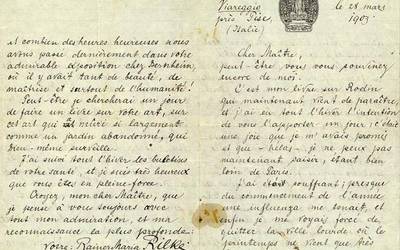 Viareggio
près Pise,
(Italie)
le 28 mars
1903
Cher Maître,
peut-être vous vous souvenez
encore de moi.
C'est mon livre sur Rodin
qui maintenant vient de paraître,
et j'ai eu tout l'hiver l'intention
de vous l'apporter un jour; c'était
une joie que je m'avais promis
et que - hélas - je ne peux pas
maintenant saisir, étant bien
loin de Paris.
J'ai été souffrant; presque
du commencement de l'année
une influenza me tenait, et
enfin je me voyais forcé de
quitter la ville lourde où le
printemps ne veut que très
et combien des heures heureuses nous
avons passé dernièrement dans votre
admirable exposition chez Bernheim,
où il y avait tant de beauté, de
maîtrise et surtout de l'humanité!
Peut-être je chercherai un jour
de faire un livre sur votre art, sur
cet art qui si largement
comme un jardin abandonné, que
Dieu-même surveille.
J'ai suivi tout l'hiver les bulletins
de votre santé, et je suis très heureux
que vous êtes en pleine force.
Croyez, mon cher Maître, que
je pense à vous toujours avec
tout mon admiration et ma
reconnaissance la plus profonde.
Votre: Rainer Maria Rilke